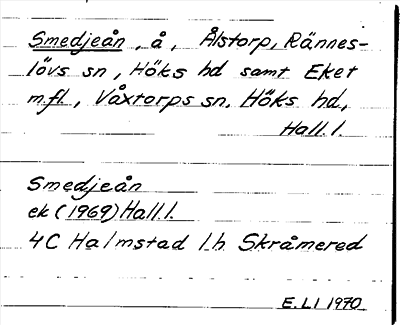 Smedjeån, å, Ålstorp, Rännes-
lövs sn, Höks hd samt Eket
m.fl., Våxtorps sn. Höks hd,
Hall. l.
Smedjeån
ek (1969) Hall. l.
4C Halmstad l.h Skråmered
E.LI 1970